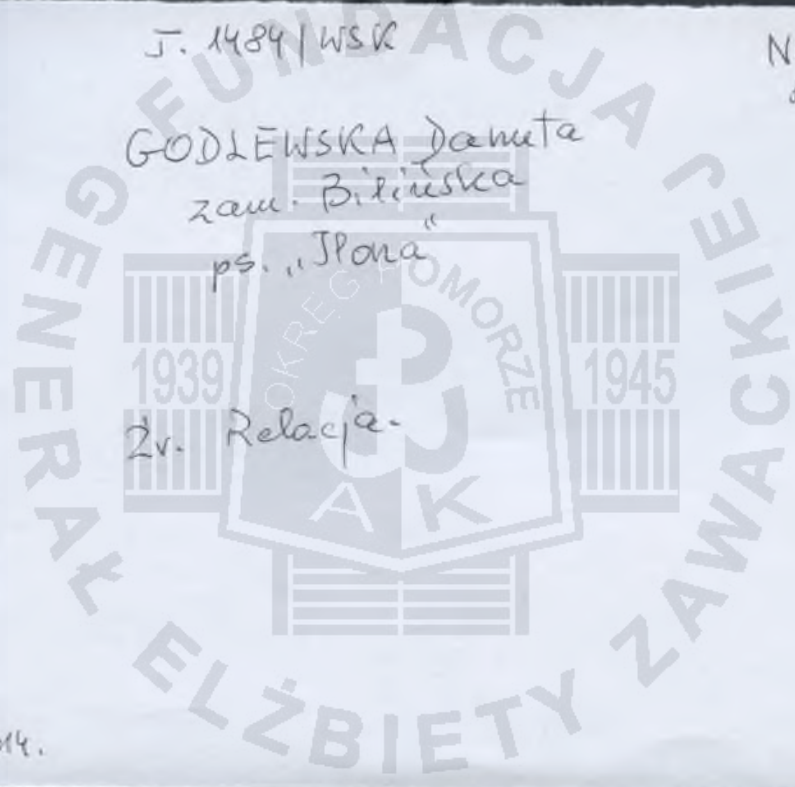 J. 1484/WSK
N
GODLEWSKA Danuta
zam. Bilińska
ps. „Ilona"
Źr. Relacja.
14.
FUNDACJA
GENERAŁ ELŻBIETY ZAWACKIEJ
OKRĘG POMORZE
1939
1945
AK